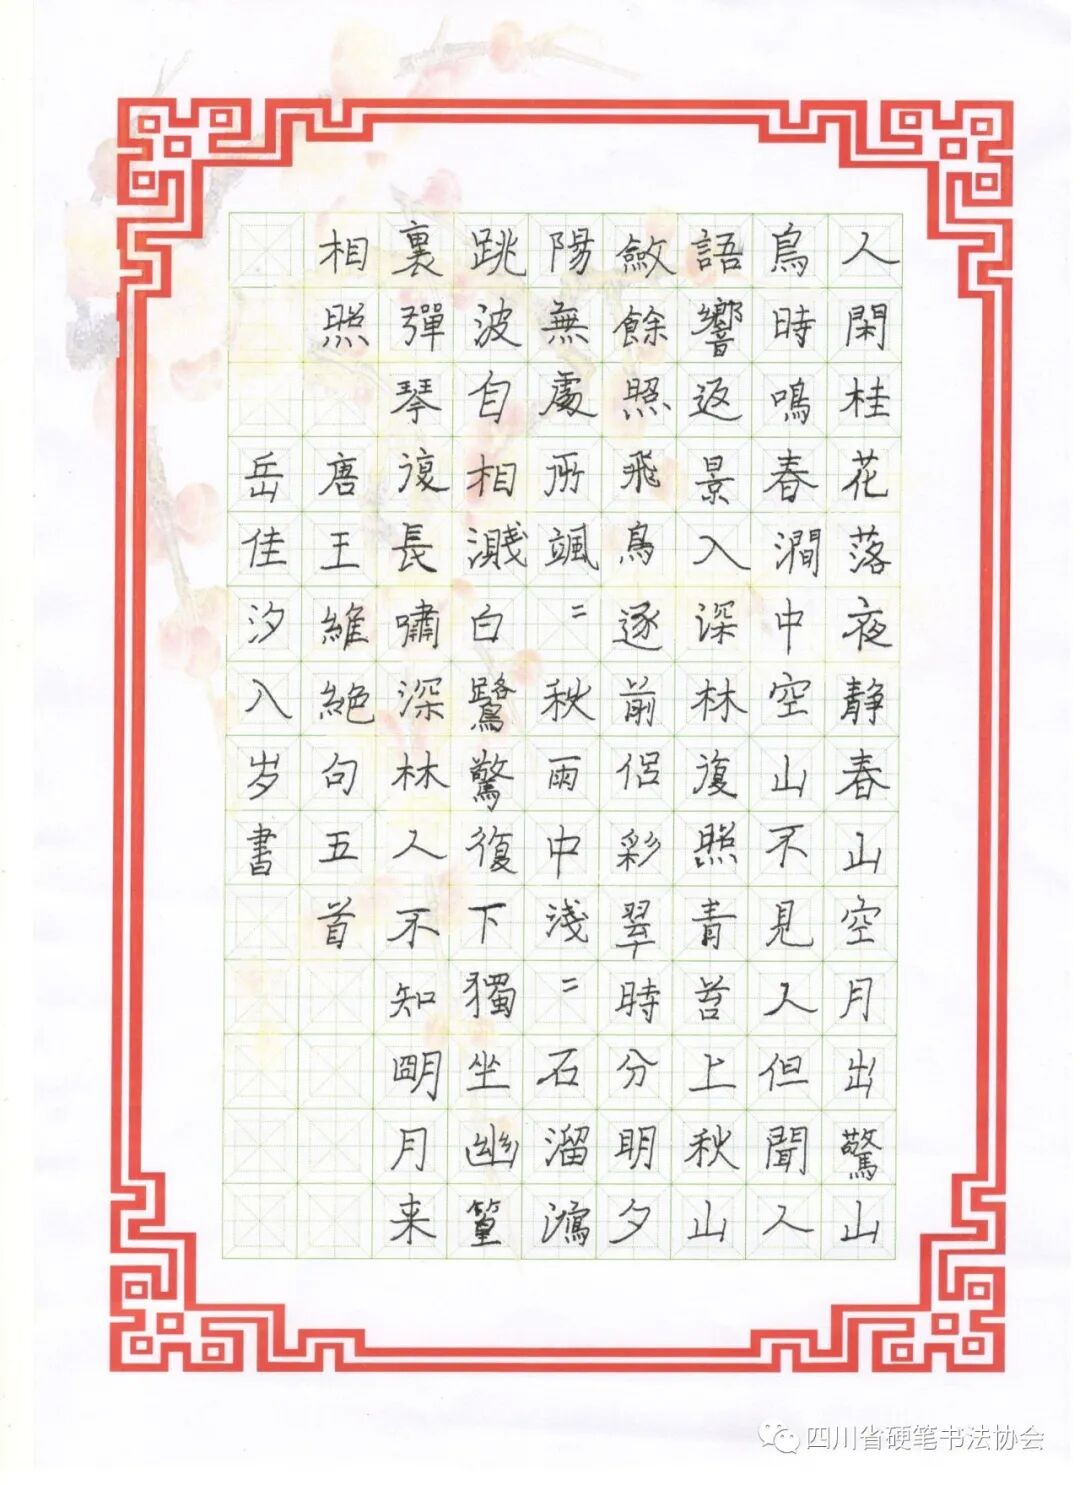 人閑桂花落夜静春山空月出驚山
鳥時鳴春澗中空山不見人但聞人
語響返景入深林復照青苔上秋山
斂餘照飛鳥逐前侶彩翠時分明夕
陽無處所颯〻秋雨中淺〻石溜瀉
跳波自相濺白鷺驚復下獨坐幽篁
裏彈琴復長嘯深林人不知明月来
相照 唐王維絶句五首
岳佳汐八岁書
四川省硬笔书法协会